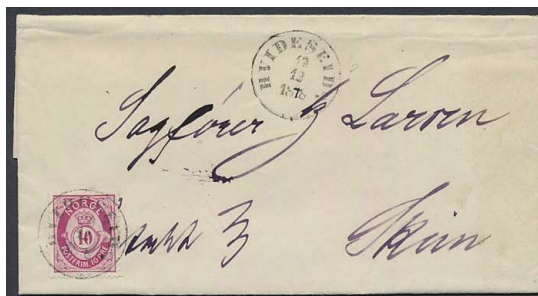 HVIDESEID
12
12
1878
Sagfører Larsen
NORGE
10
POSTFRIM. 10 ØRE
Skien